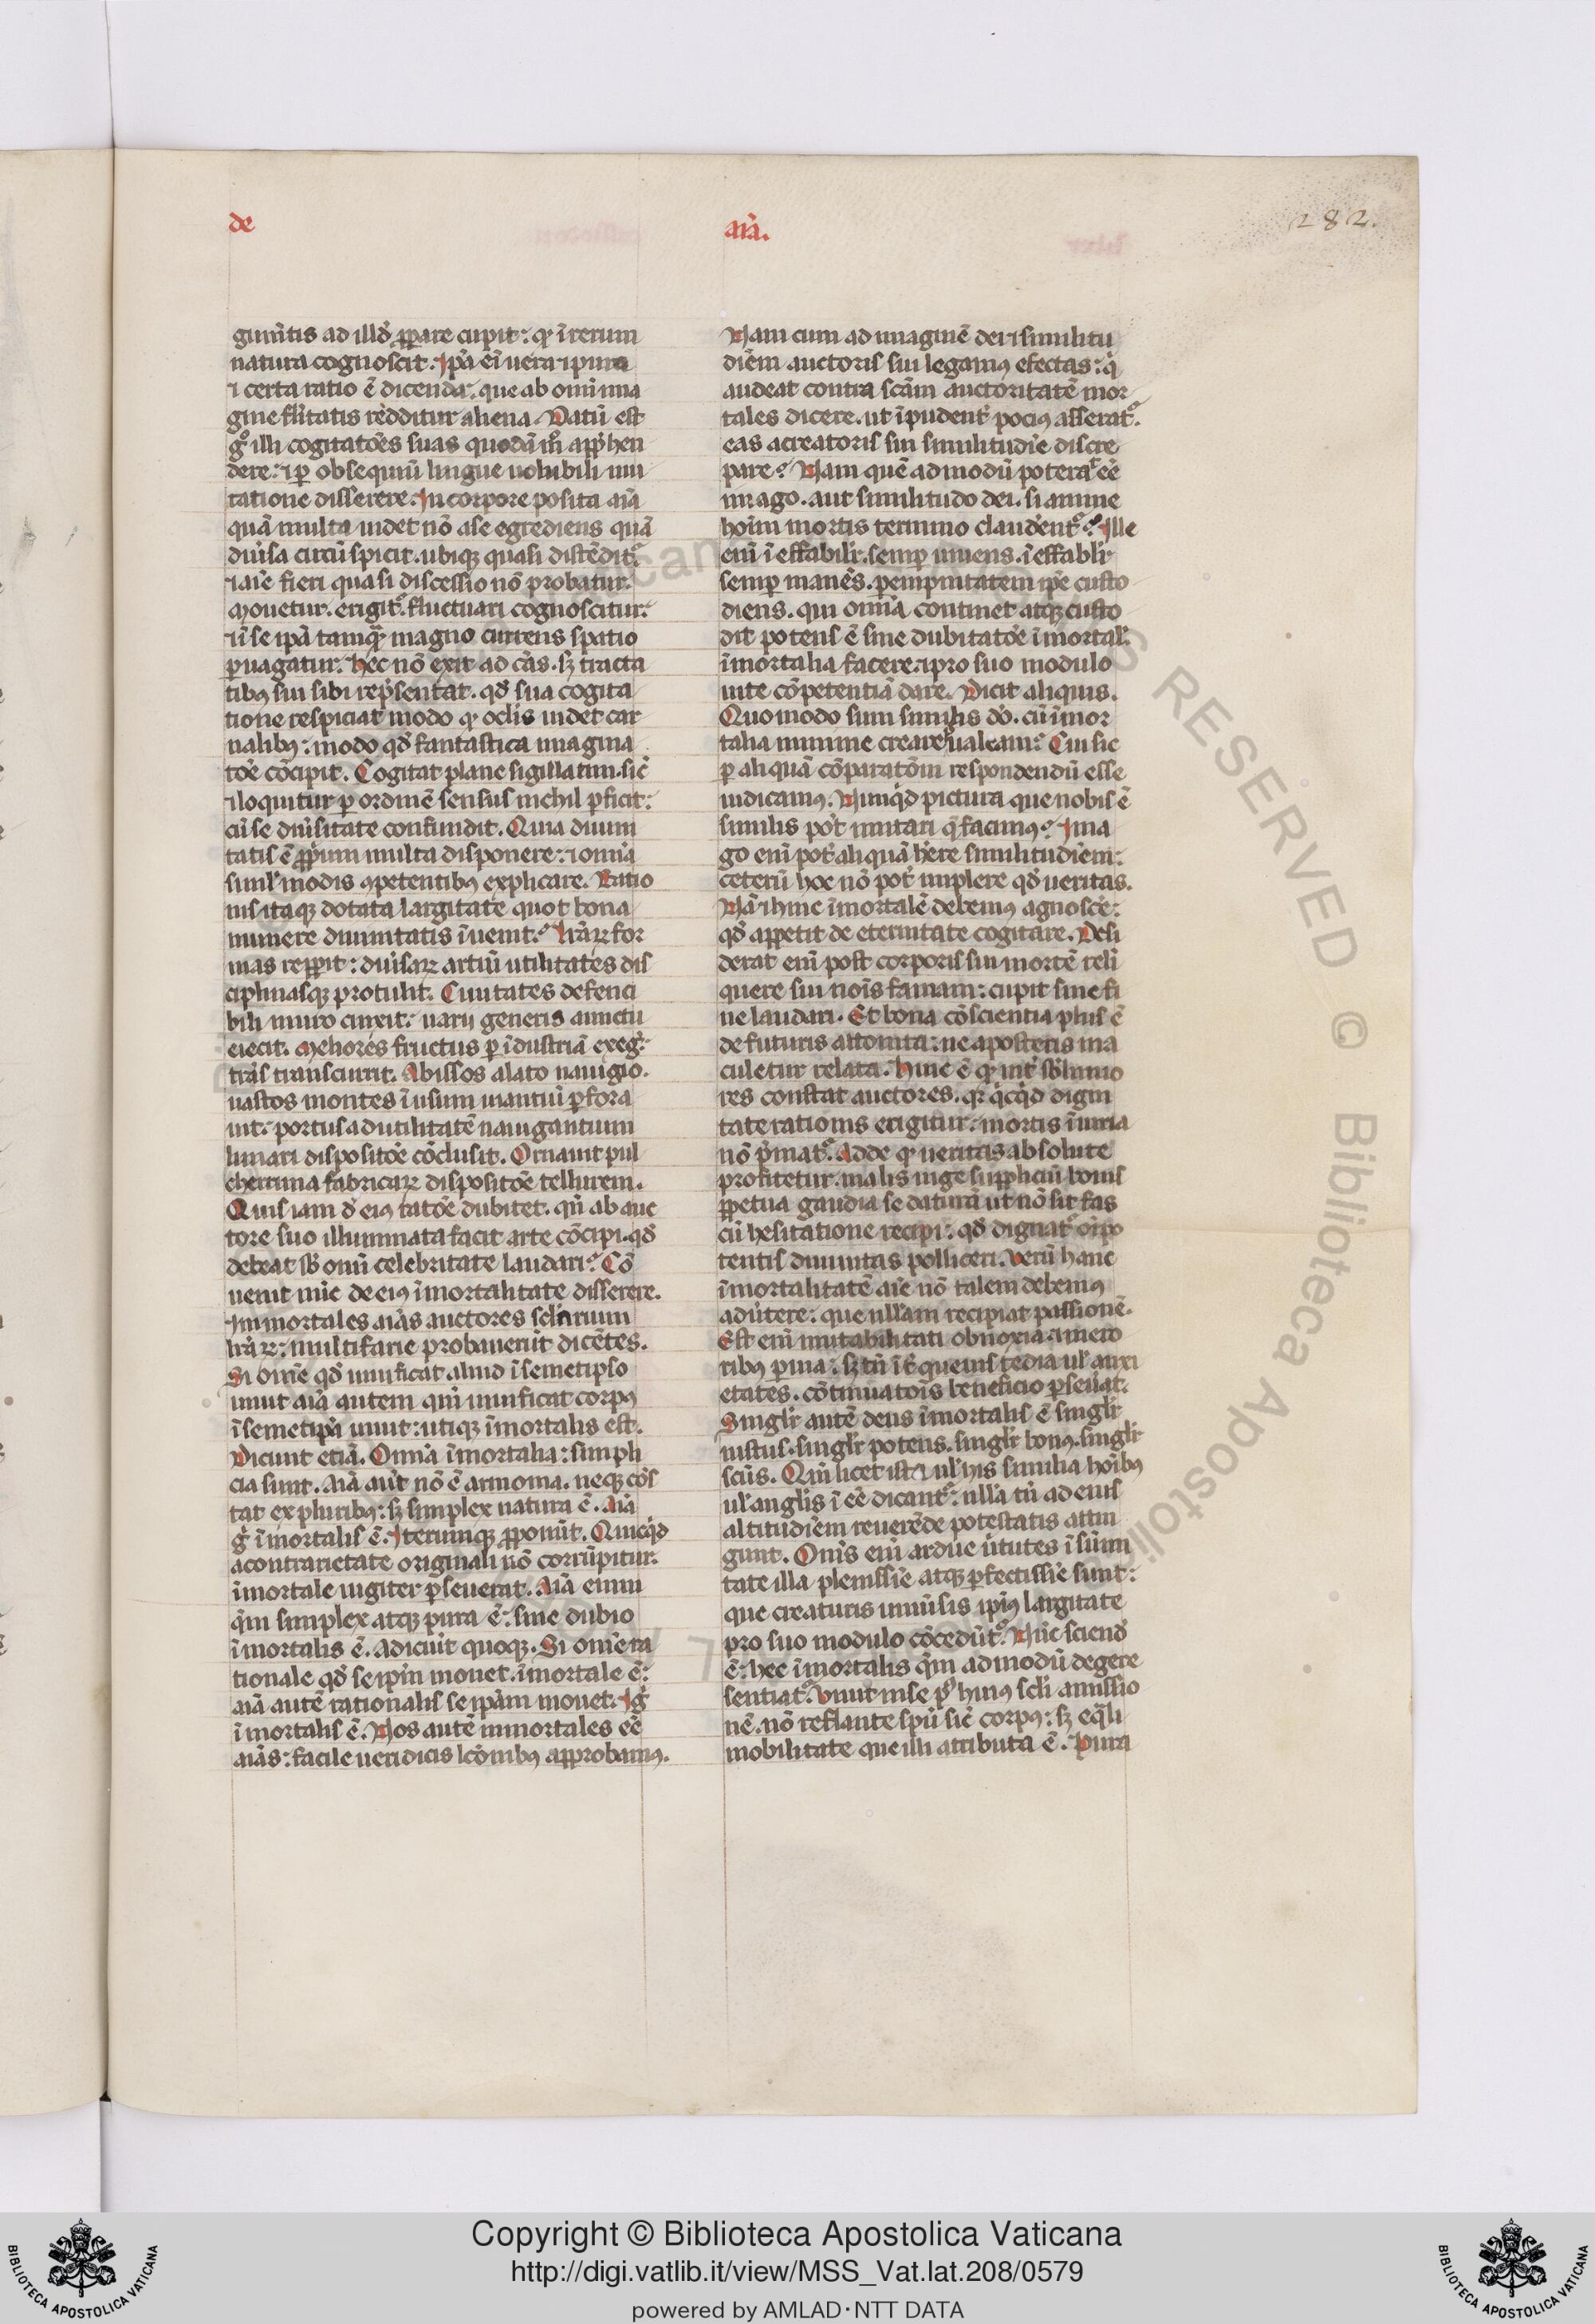 de
aīa.
282.
gum̄tis ad illd̓ ꝓpare cupit: qͥ ī rerum
natura cognoscit. Ip̄a eī uera ⁊ pura
⁊ certa ratio ē dicenda. que ab omī ima
gine fl̓itatis redditur aliena. Datū est
gͦ illi cogitatōes suas quodā m̊ app̄hen
dere: ⁊ ꝑ obsequiū lingue uolubili mu
tatione disserere. In corpore posita aīa
quā multa uidet nō a se egrediens quā
diu̓sa circū spicit. ubiqꝫ quasi distēdit᷑.
⁊ aīe fieri quasi discessio nō probatur.
Mouetur. erigit᷑. fluctuari cognoscitur.
⁊ ī se ip̄a tamqͣꝫ magno currens spatio
ꝑuagatur. Hec nō exit ad cās. sꝫ tracta
tibꝰ sui sibi rep̄sentat. qd̓ sua cogita
tione respiciat modo qͥ oclis̄ uidet car
nalibꝰ: modo qd̓ fantastica imagina
tōe cōcipit. Cogitat plane sigillatim. sic̄
⁊ loquitur ꝑ ordinē sensus nichil ꝑficit:
cū se diu̓sitate confundit. Quia diuini
tatis ē ꝓp̄um multa disponere: ⁊ omīa
siml̓ modis ꝯpetentibꝰ explicare. Ratio
nis itaqꝫ dotata largitate quot bona
munere diuinitatis īuenit. Lr̄aꝝ for
mas repꝑit: diu̓saꝝ artiū utilitates dis
ciplinasqꝫ protulit. Ciuitates defenci
bili muro cinxit: uarij generis amictū
eiecit. Meliores fructus ꝑ īdustriā exeg̓.
tr̄as transcurrit. Abissos alato nauigio.
uastos montes ī usum uiantiū ꝑfora
uit: portus ad utilitatē nauigantium
lunari dispositōe cōclusit. Ornauit pul
cherrima fabricaꝝ dispositōe tellurem.
Quis iam d̓ eiꝰ ratōe dubitet. qn̄ ab auc
tore suo illuminata facit arte cōcipi. qd̓
debeat sb̓ omī celebritate laudari. Cō
uenit nūc de eiꝰ īmortalitate disserere.
Immortales aīas auctores sclariuum
lr̄aꝝ: multifarie probauerūt dicētes.
Si om̄e qd̓ uiuificat aliud ī semetipso
uiuit aīa autem qm̄ uiuificat corpꝰ
ī semetip̄a uiuit: utiqꝫ īmortalis est.
Dicunt etiā. Omīa īmortalia: simpli
cia sunt. Aīa aut̄ nō ē armonia. neqꝫ cōs
tat ex pluribus: sꝫ simplex natura ē. Aīa
gͥ īmortalis ē. Iterumqꝫ ꝓponūt. Quicqͥd
a contrarietate originali nō corrūpitur.
īmortale iugiter ꝑseuerat. Aīa enim
qm̄ simplex atqꝫ pura ē: sine dubio
īmortalis ē. Adiciūt quoqꝫ. Si om̄e ra
tionale qd̓ se ip̄m mouet. īmortale ē:
aīa autē rationalis se ip̄am mouet. Igͥ
īmortalis ē. Nos autē inmortales eē
aīas: facile ueridicis lc̄onibꝰ approbamꝰ.
Nam cum ad imaginē dei ⁊ similitu
diēm auctoris sui legamꝰ effectas: qͥ
audeat contra scām auctoritatē mor
tales dicere. ut īpudent̓ pociꝰ asserat᷑.
eas a creatoris sui similitudīe discre
pare? Nam quē ad modū poterat eē
imago. aut similitudo dei. si anime
hoīm mortis termino claudent᷑? Ille
enī ī effabilit̓. semꝑ uiuens. ī effabilit̓
semꝑ manēs. ꝑempnitatem ip̄e custo
diens. qui omīa continet atqꝫ custo
dit potens ē sine dubitatōe īmortal̓.
īmortalia facere. ⁊ pro suo modulo
uite cōpetentiā dare. Dicit aliquis.
Quomodo sum similis dō. cū īmor
talia minime creare ualeam? Cui sic
ꝑ aliquā cōparatōm respondendū esse
iudicamꝰ. Nunqͥd pictura que nobis ē
similis pōt imitari q̄ facimꝰ? Ima
go enī pōt aliquā h̓ere similitudīem:
ceterū hoc nō pōt implere qd̓ ueritas.
Nā ⁊ hinc īmortalē debemꝰ agnosce̓:
qd̓ appetit de eternitate cogitare. Desi
derat enī post corporis sui mortē reli
quere sui noīs famam: cupit sine fi
ne laudari. Et bona cōscientia plus ē
de futuris attonita: ne a posteris ma
culetur relata. Hinc ē qͥ int̓ sb̓limio
res constat auctores. qͥ qͥcqͥd digni
tate rationis erigitur: mortis īiuria
nō p̄mat᷑. Adde qͥ ueritas absolute
profitetur. malis iuge suppliciū bonis
ꝑpetua gaudia se daturā ut nō sit fas
cū hesitatione recipi: qd̓ dignat᷑ oīpo
tentis diuinitas polliceri. Verū hanc
īmortalitatē aīe nō talem debemꝰ
adu̓tere: que ullam recipiat passionē.
Est enī mutabilitati obnoxia ⁊ mero
ribꝰ ꝑuia: sꝫ tn̄ īt̓ queuis tedia ul̓ anxi
etates. cōtinuatōis beneficio ꝑseu̓at.
Singlr̓ autē deus īmortalis ē singlr̓
iustus. singlr̓ potens. singlr̓ bonꝰ. singlr̓
scūs. Qm̄ licet ista ul̓ hijs similia hoībꝰ
ul̓ angl̓is ī eē dicant᷑: ulla tn̄ ad eius
altitudīem reuerēde potestatis attin
gunt. Om̄s enī ardue u̓tutes ī sūmi
tate illa plenissīe atqꝫ ꝑfectissīe sunt:
que creaturis uniu̓sis ip̄iꝰ largitate
pro suo modulo cōcedūt᷑. Nūc sciend̓
ē: hec īmortalis qm̄ ad modū degere
sentiat᷑. Viuit in se pꝰ huiꝰ sc̄li amissio
nē. nō reflante spū sic̄ corpꝰ: sꝫ eq̄li
mobilitate que illi attributa ē. Pura
Copyright © Biblioteca Apostolica Vaticana
http://digi.vatlib.it/view/MSS_Vat.lat.208/0579
powered by AMLAD·NTT DATA
BIBLIOTECA APOSTOLICA VATICANA
BIBLIOTECA APOSTOLICA VATICANA